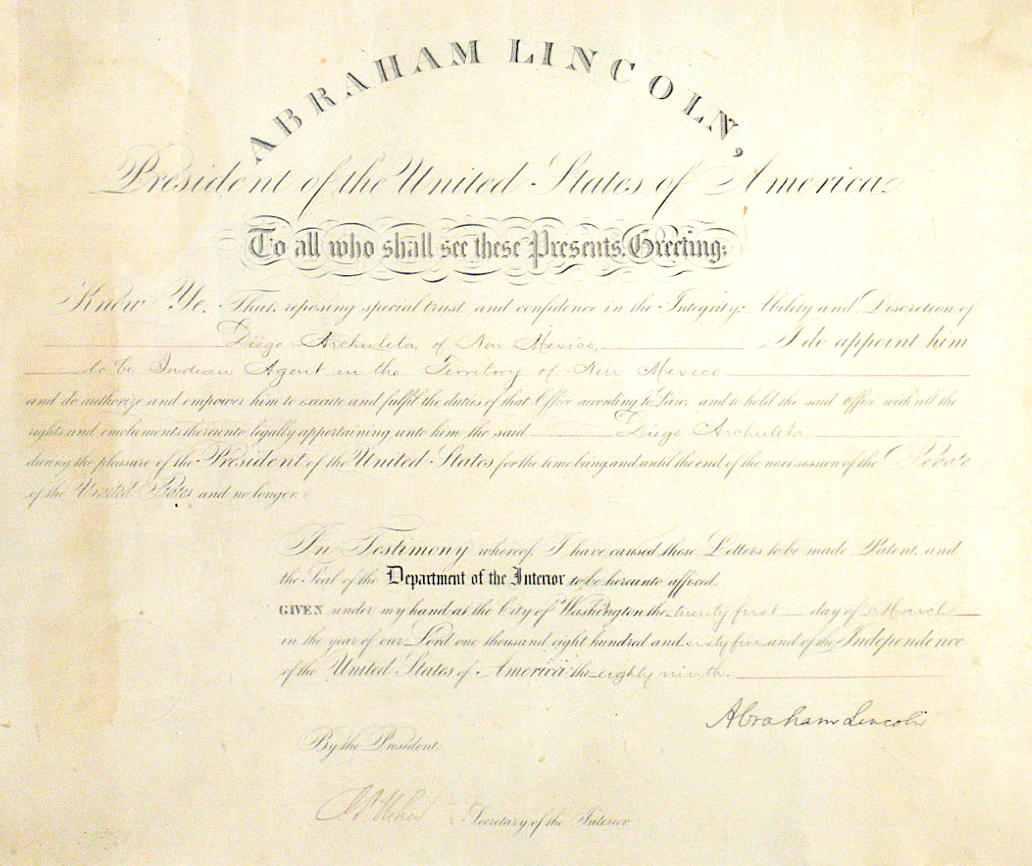 ABRAHAM LINCOLN,
President of the United States of America.
To all who shall see these Presents, Greeting:
Know Ye. That, reposing special trust and confidence in the Integrity, Ability and Discretion of
Diego Archuleta, of New Mexico, I do appoint him
to be Indian Agent in the Territory of New Mexico
and do authorize and empower him to execute and fulfil the duties of that Office according to Law: and to hold the said office with all the
rights and emoluments thereunto legally appertaining unto him the said Diego Archuleta,
during the pleasure of the President of the United States for the time being and until the end of the next session of the Senate
of the United States and no longer.
In Testimony whereof, I have caused these Letters to be made Patent, and
the Seal of the Department of the Interior to be hereunto affixed.
GIVEN under my hand at the City of Washington the twenty first day of March
in the year of our Lord one thousand eight hundred and sixty five and of the Independence
of the United States of America the eighty ninth.
Abraham Lincoln
By the President:
J.P. Usher Secretary of the Interior